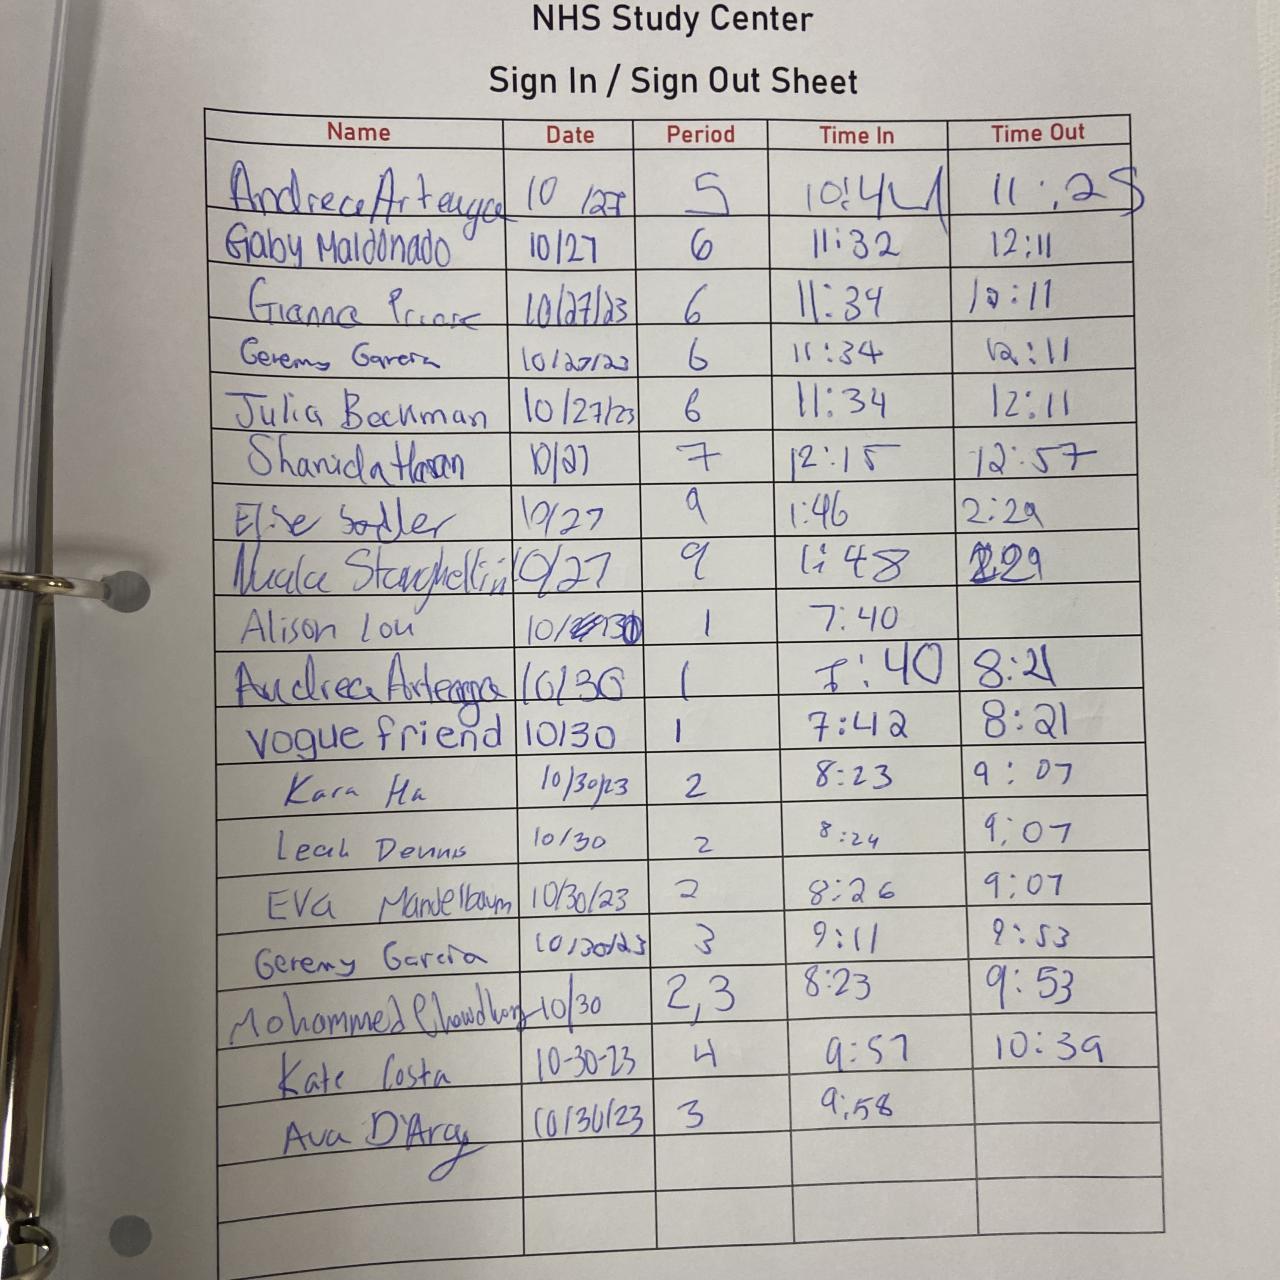 NHS Study Center
Sign In / Sign Out Sheet
Name Date Period Time In Time Out
Andrea Arteaga 10/27 5 10:44 11:25
Gaby Maldonado 10/27 6 11:32 12:11
Gianna 10/27/23 6 11:34 12:11
Geremy Garcia 10/27/23 6 11:34 12:11
Julia Beckman 10/27/23 6 11:34 12:11
Shanida Hasan 10/27 7 12:15 12:57
Elise Sadler 10/27 9 1:46 2:29
10/27 9 1:48 229
Alison Lou 10/30 1 7:40
Andrea Arteaga 10/30 1 7:40 8:21
vogue friend 10/30 1 7:42 8:21
Kara Ha 10/30/23 2 8:23 9:07
Leah Dennis 10/30 2 8:24 9:07
EVA Mandelbaum 10/30/23 2 8:26 9:07
Geremy Garcia 10/30/23 3 9:11 9:53
Mohammed Chowdhury 10/30 2,3 8:23 9:53
Kate Costa 10-30-23 4 9:57 10:39
Ava D'Arcy 10/30/23 3 9:58